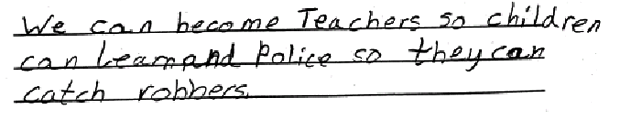 We can become Teachers so children
can Learnand Police so they can
catch robbers.